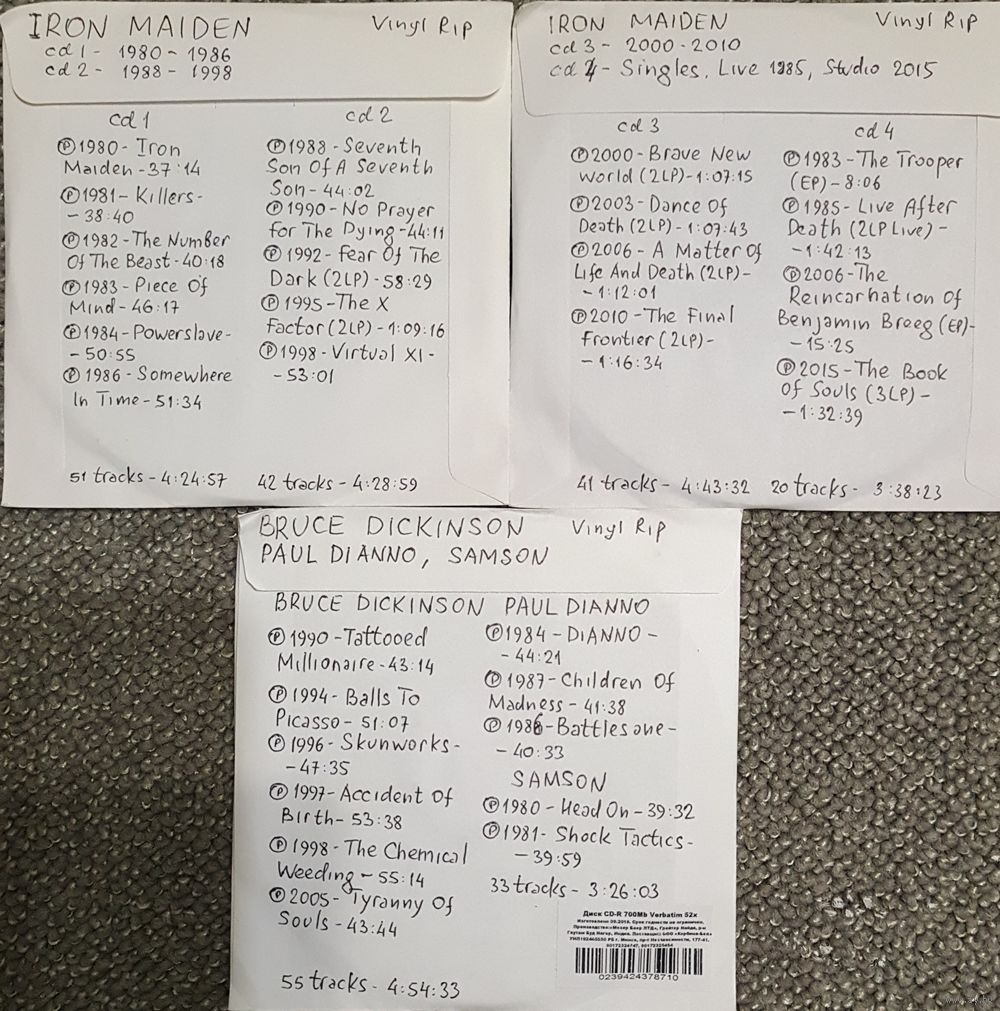 IRON MAIDEN Vinyl Rip
cd 1 - 1980 - 1986
cd 2 - 1988 - 1998
cd 1
Ⓟ1980 - Iron
Maiden - 37:14
Ⓟ1981 - Killers -
- 38:40
Ⓟ1982 - The Number
Of The Beast - 40:18
Ⓟ1983 - Piece Of
Mind - 46:17
Ⓟ1984 - Powerslave -
- 50:55
Ⓟ1986 - Somewhere
In Time - 51:34
51 tracks - 4:24:57
cd 2
Ⓟ1988 - Seventh
Son Of A Seventh
Son - 44:02
Ⓟ1990 - No Prayer
for The Dying - 44:11
Ⓟ1992 - Fear Of The
Dark (2LP) - 58:29
Ⓟ1995 - The X
Factor (2LP) - 1:09:16
Ⓟ1998 - Virtual XI -
- 53:01
42 tracks - 4:28:59
IRON MAIDEN Vinyl Rip
cd 3 - 2000 - 2010
cd 4 - Singles, Live 1985, Studio 2015
cd 3
Ⓟ2000 - Brave New
World (2LP) - 1:07:15
Ⓟ2003 - Dance Of
Death (2LP) - 1:07:43
Ⓟ2006 - A Matter Of
Life And Death (2LP) -
- 1:12:01
Ⓟ2010 - The Final
Frontier (2LP) -
- 1:16:34
41 tracks - 4:43:32
cd 4
Ⓟ1983 - The Trooper
(EP) - 8:06
Ⓟ1985 - Live After
Death (2LP Live) -
- 1:42:13
Ⓟ2006 - The
Reincarnation Of
Benjamin Breeg (EP) -
- 15:25
Ⓟ2015 - The Book
Of Souls (3LP) -
- 1:32:39
20 tracks - 3:38:23
BRUCE DICKINSON Vinyl Rip
PAUL DIANNO, SAMSON
BRUCE DICKINSON
Ⓟ1990 - Tattooed
Millionaire - 43:14
Ⓟ1994 - Balls To
Picasso - 51:07
Ⓟ1996 - Skunworks -
- 47:35
Ⓟ1997 - Accident Of
Birth - 53:38
Ⓟ1998 - The Chemical
Weeding - 55:14
Ⓟ2005 - Tyranny Of
Souls - 43:44
55 tracks - 4:54:33
PAUL DIANNO
Ⓟ1984 - DIANNO -
- 44:21
Ⓟ1987 - Children Of
Madness - 41:38
Ⓟ1986 - Battlesone -
- 40:33
SAMSON
Ⓟ1980 - Head On - 39:32
Ⓟ1981 - Shock Tactics -
- 39:59
33 tracks - 3:26:03
Диск CD-R 700Mb Verbatim 52x
0239424378710